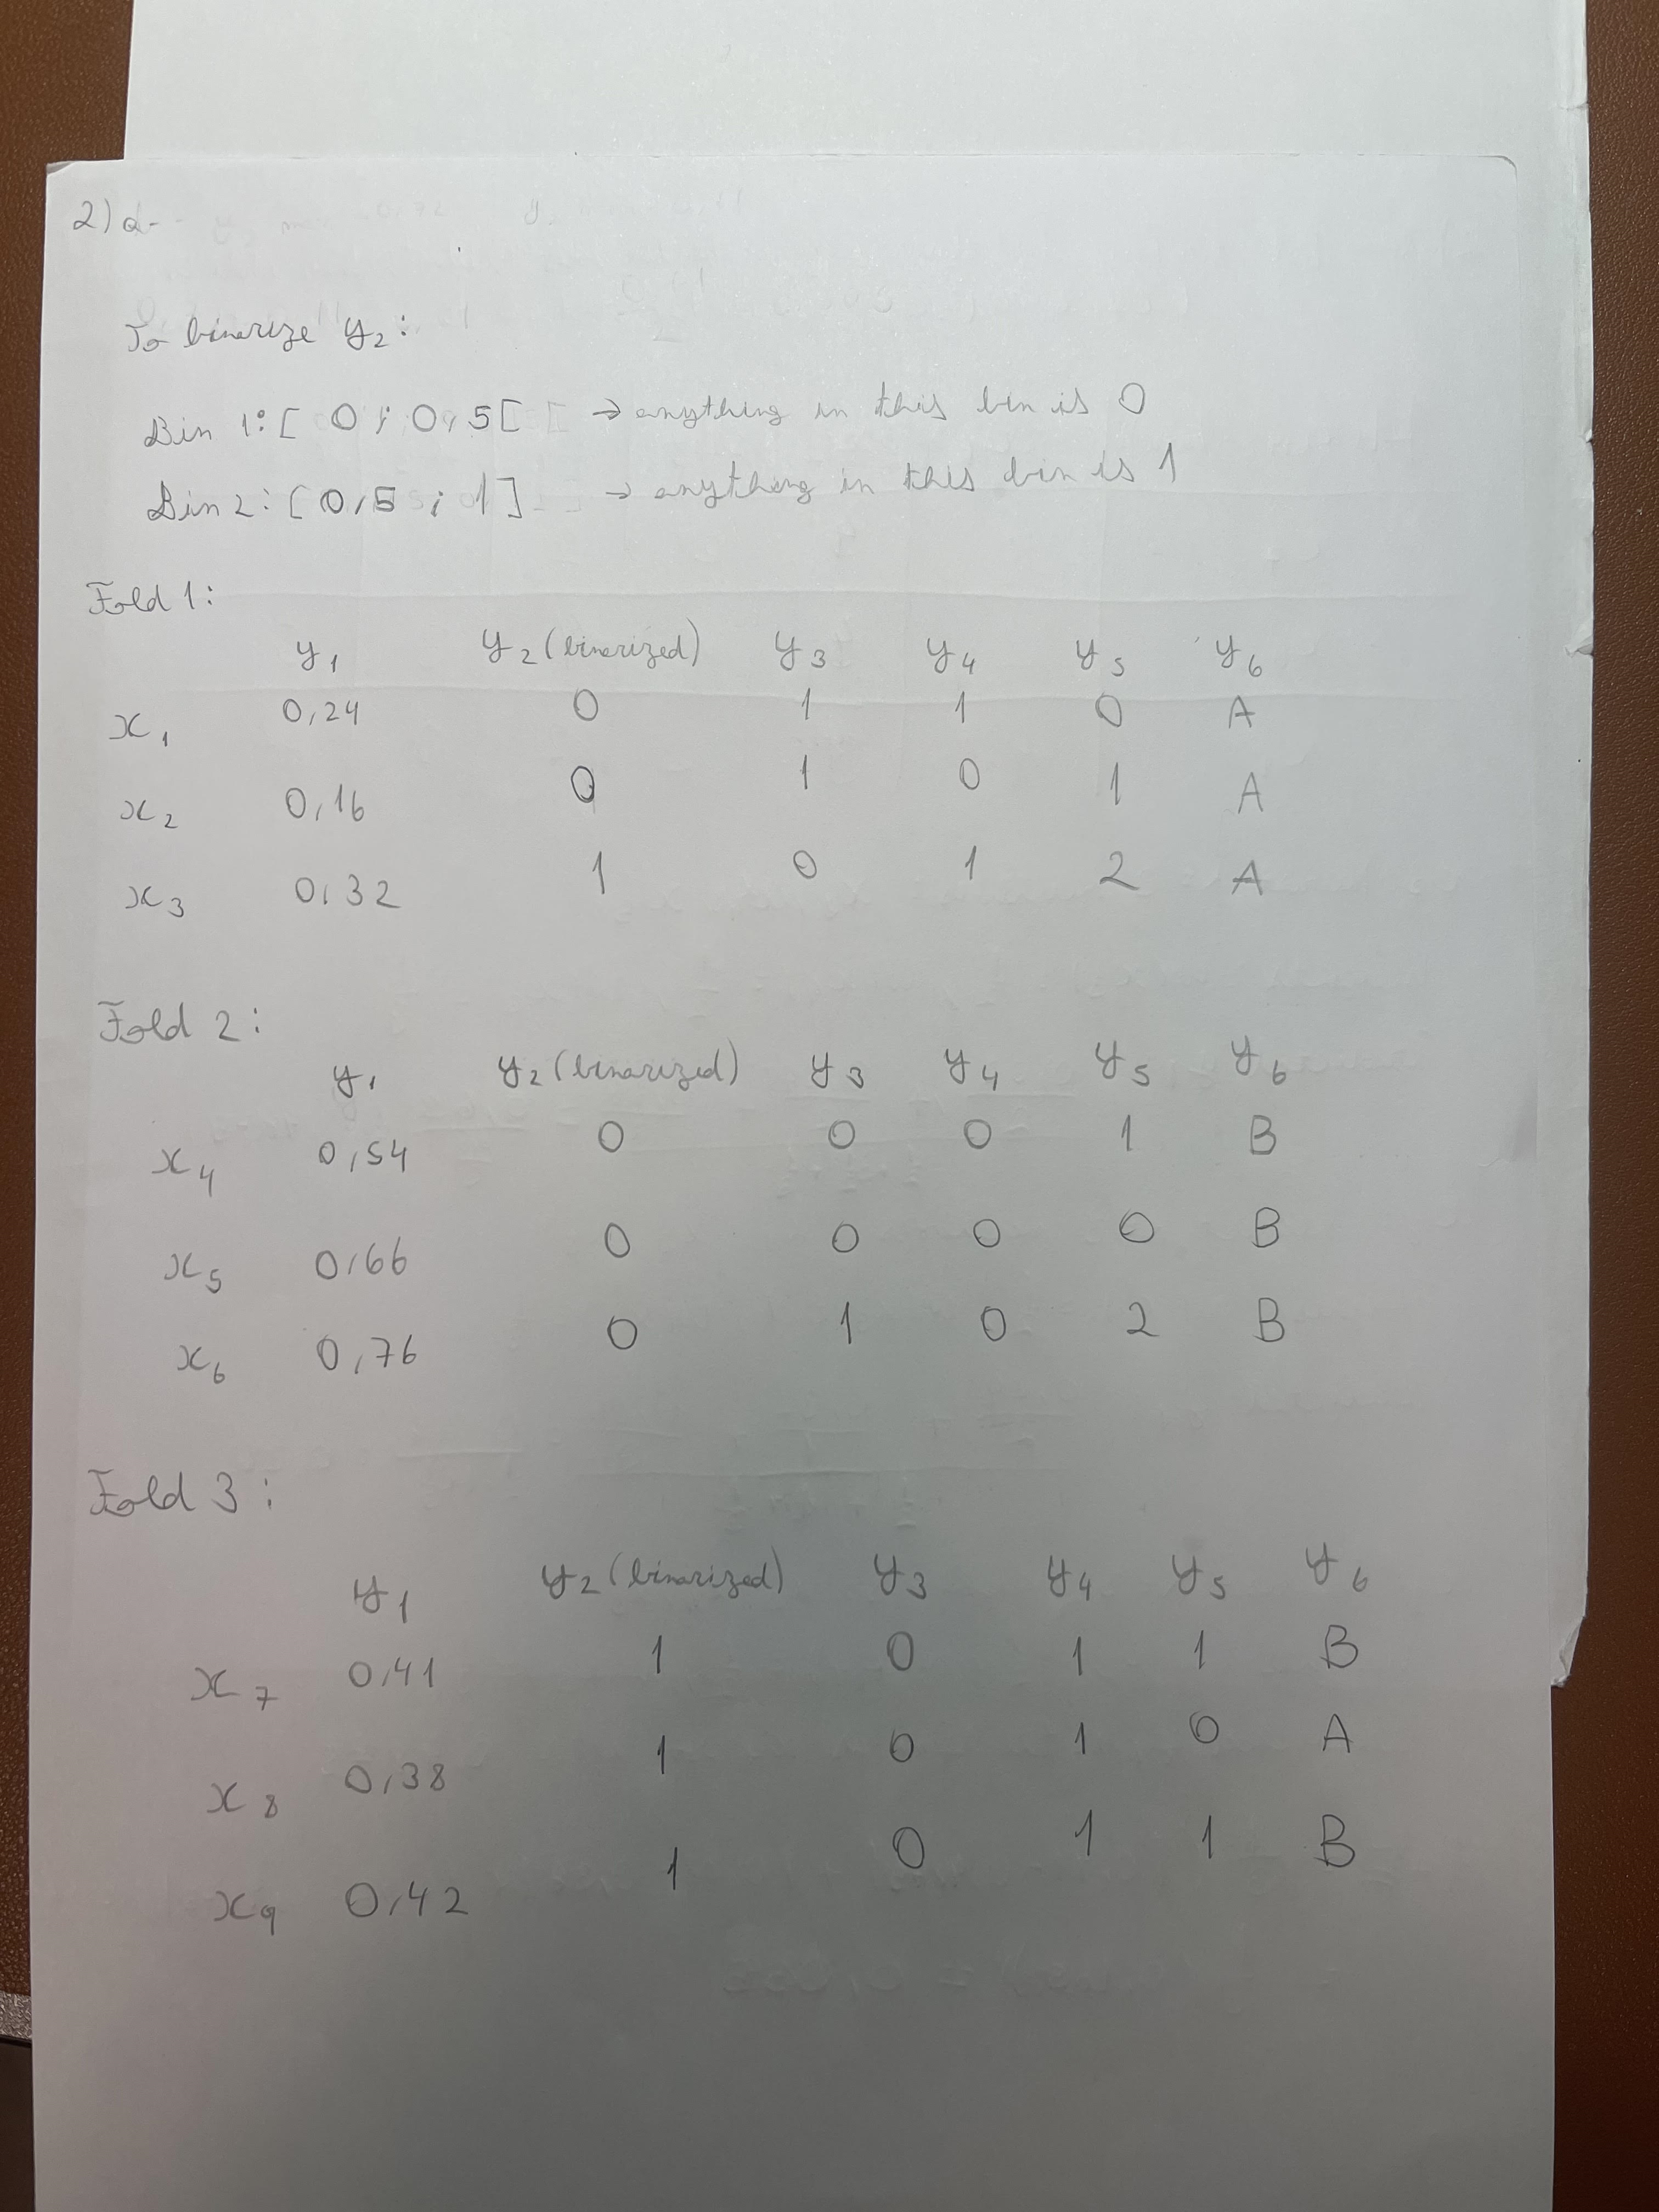 2) a-
To binarize y2:
Bin 1: [ 0 ; 0,5 [ → anything in this bin is 0
Bin 2: [ 0,5 ; 1 ] → anything in this bin is 1
Fold 1:
y1 y2 (binarized) y3 y4 y5 y6
x1 0,24 0 1 1 0 A
x2 0,16 0 1 0 1 A
x3 0,32 1 0 1 2 A
Fold 2:
y1 y2 (binarized) y3 y4 y5 y6
x4 0,54 0 0 0 1 B
x5 0,66 0 0 0 0 B
x6 0,76 0 1 0 2 B
Fold 3:
y1 y2 (binarized) y3 y4 y5 y6
x7 0,41 1 0 1 1 B
x8 0,38 1 0 1 0 A
x9 0,42 1 0 1 1 B